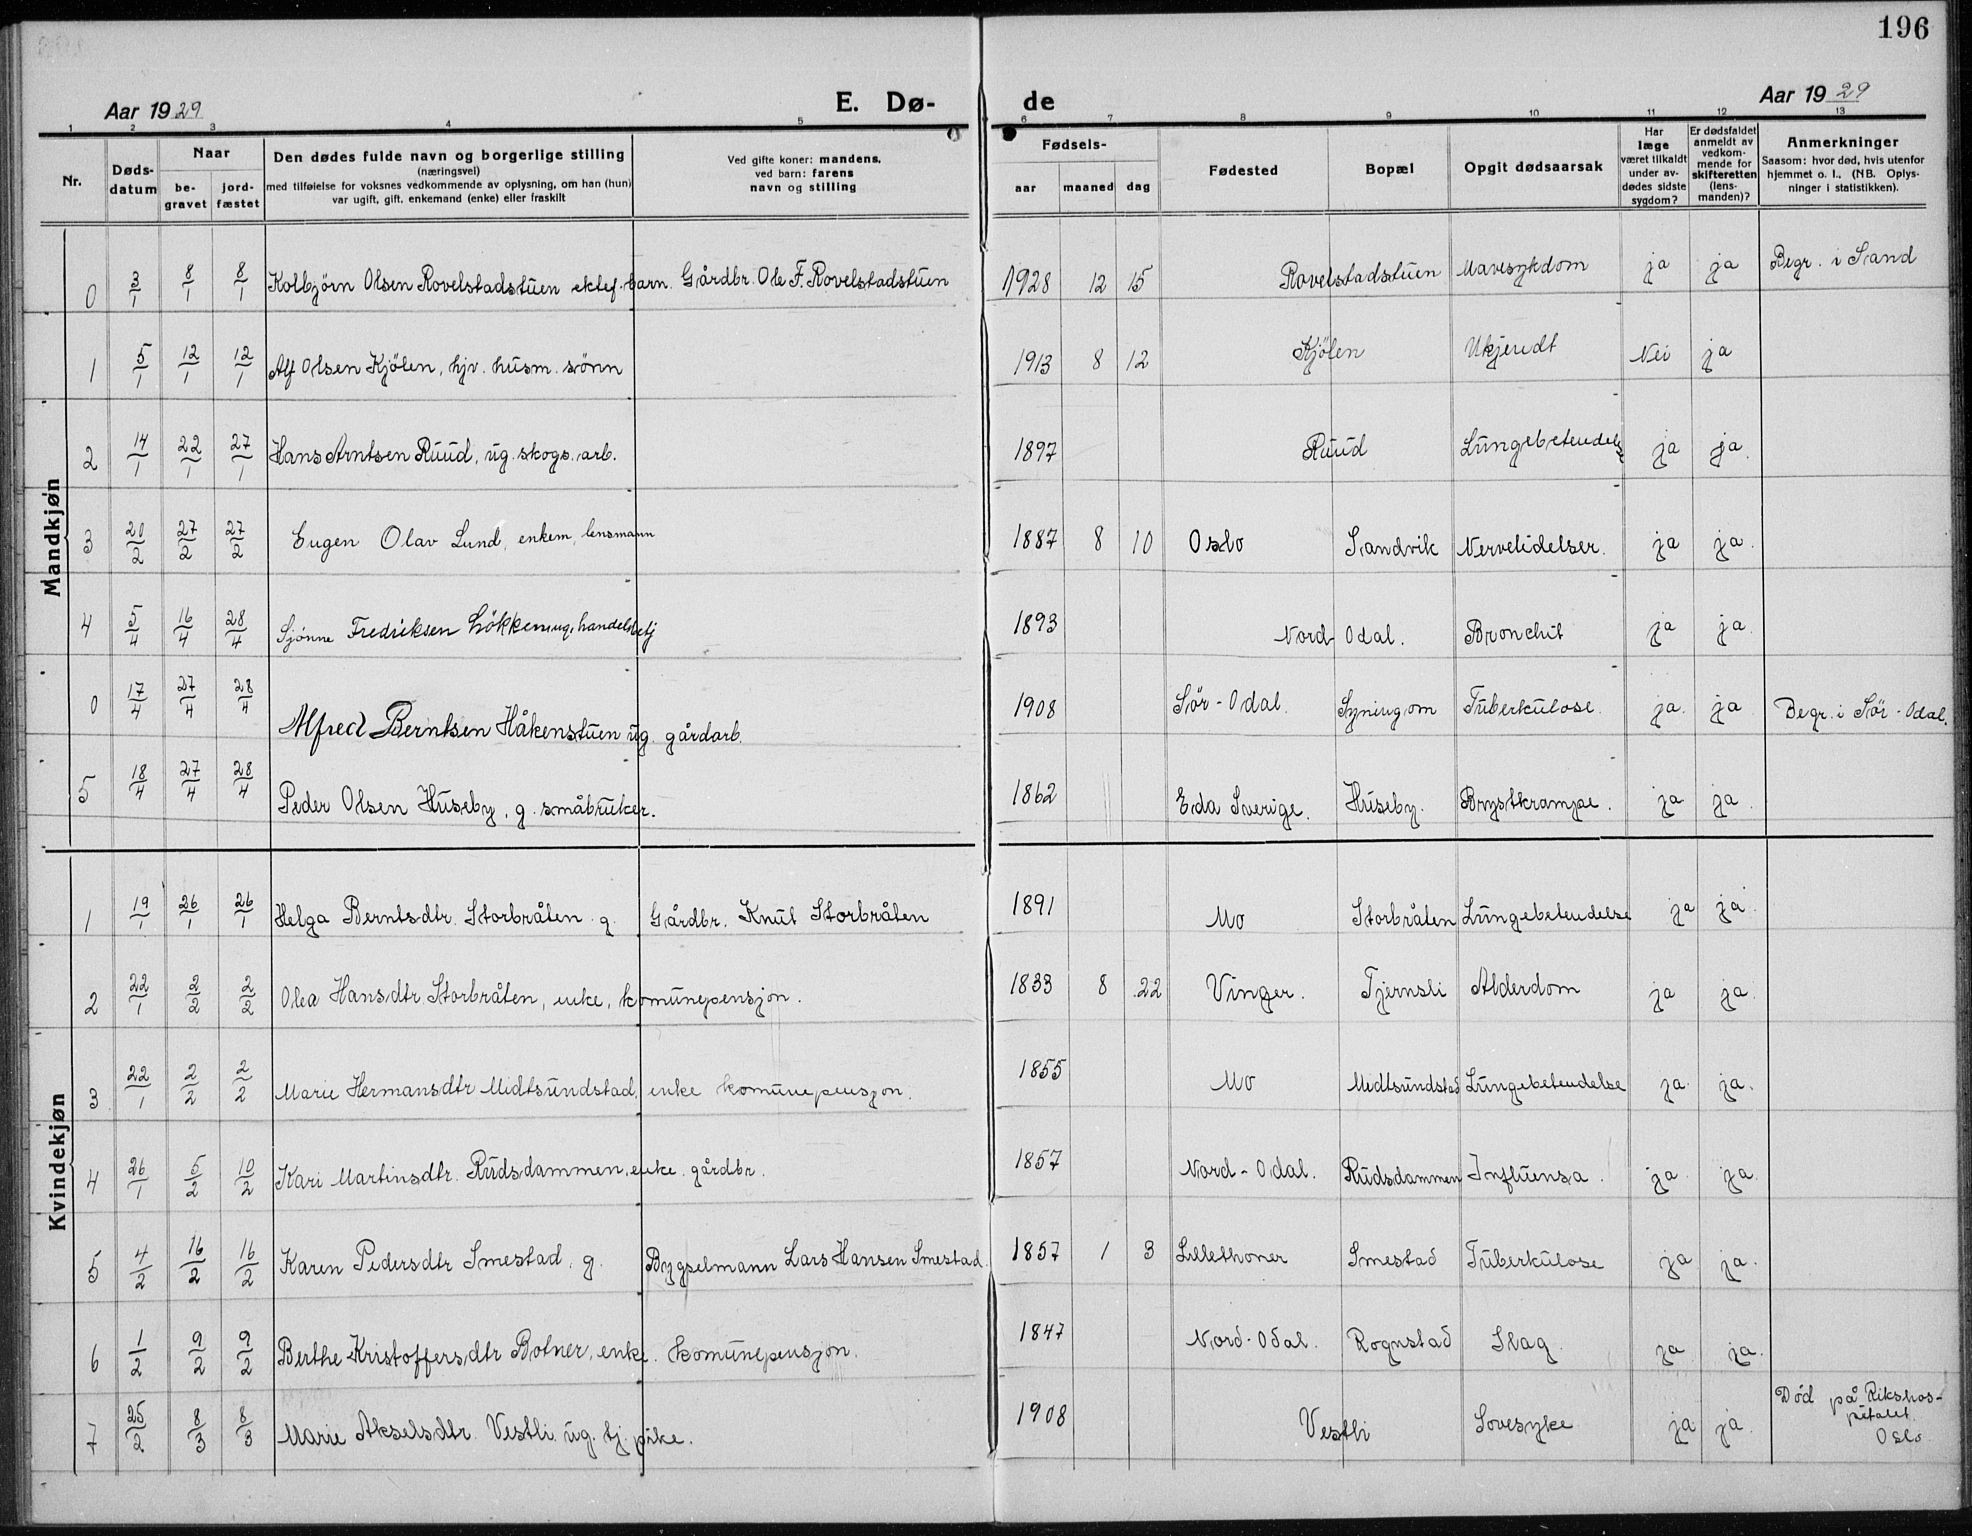 196
Aar 1929 E. Dø- de Aar 1929
1 2 3 4 5 6 7 8 9 10 11 12 13
Nr. Døds-datum Naar be-gravet jord-fæstet Den dødes fulde navn og borgerlige stilling (næringsvei) med tilføielse for voksnes vedkommende av oplysning, om han (hun) var ugift, gift, enkemand (enke) eller fraskilt Ved gifte koner: mandens, ved barn: farens navn og stilling Fødsels- aar maaned dag Fødested Bopæl Opgit dødsaarsak Har læge været tilkaldt under av-dødes sidste sygdom? Er dødsfaldet anmeldt av vedkom-mende for skifteretten (lens-manden)? Anmerkninger Saasom: hvor død, hvis utenfor hjemmet o. l., (NB. Oplys-ninger i statistikken).
Mandkjøn
0 3/1 8/1 8/1 Kolbjörn Olsen Rovelstadstuen ektef. barn. Gårdbr. Ole F. Rovelstadstuen 1928 12 15 Rovelstadstuen Mavesykdom ja ja Begr. i Sand
1 5/1 12/1 12/1 Alf Olsen Kjölen, hjv. husm. sönn 1913 8 12 Kjölen Ukjendt Nei ja
2 14/1 22/1 27/1 Hans Arntsen Ruud, ug. skogs. arb. 1897 Ruud Lungebetendelse ja ja.
3 20/2 27/2 27/2 Eugen Olav Lund, enkem, lensmann 1887 8 10 Oslo Sandvik Nervelidelser. ja ja.
4 5/4 16/4 28/4 Sjönne Fredriksen Lökken ug. handelsbetj 1893 Nord Odal. Bronchit ja ja.
0 17/4 27/4 28/4 Alfred Berntsen Håkenstuen ug. gårdarb. 1908 Sör-Odal. Syningom Tuberkulose. ja. ja Begr. i Sör-Odal.
5 18/4 27/4 28/4 Peder Olsen Huseby, g. småbruker. 1862 Eda Sverige. Huseby. Brystkrampe. ja ja.
Kvindekjøn
1 19/1 26/1 26/1 Helga Berntsdtr. Storbråten g Gårdbr. Knut Storbråten 1891 Mo Storbråten Lungebetendelse ja ja.
2 22/1 2/2 2/2 Olea Hansdtr. Storbråten, enke, komunepensjon. 1833 8 22 Vinger. Tjernsli Alderdom ja ja.
3 22/1 2/2 2/2 Marie Hermansdtr Midtsundstad, enke komunepensjon. 1855 Mo Midtsundstad Lungebetendelse ja ja.
4 26/1 5/2 10/2 Kari Martinsdtr. Rudsdammen, enke. gårdbr. 1857 Nord-Odal. Rudsdammen Influensa. ja ja.
5 4/2 16/2 16/2 Karen Pedersdtr Smestad. g. Bygselmann Lars Hansen Smestad. 1857 1 3 Lillethoner Smestad Tuberkulose ja ja.
6 1/2 9/2 9/2 Berthe Kristoffersdtr Botner, enke. komunepensjon. 1847 Nord-Odal. Rognstad Slag. ja ja.
7 25/2 8/3 8/3 Marie Akselsdtr. Vestli, ug. tj. pike. 1908 Vestli Sovesyke ja ja. Död på Rikshos-
pitalet.
Oslo